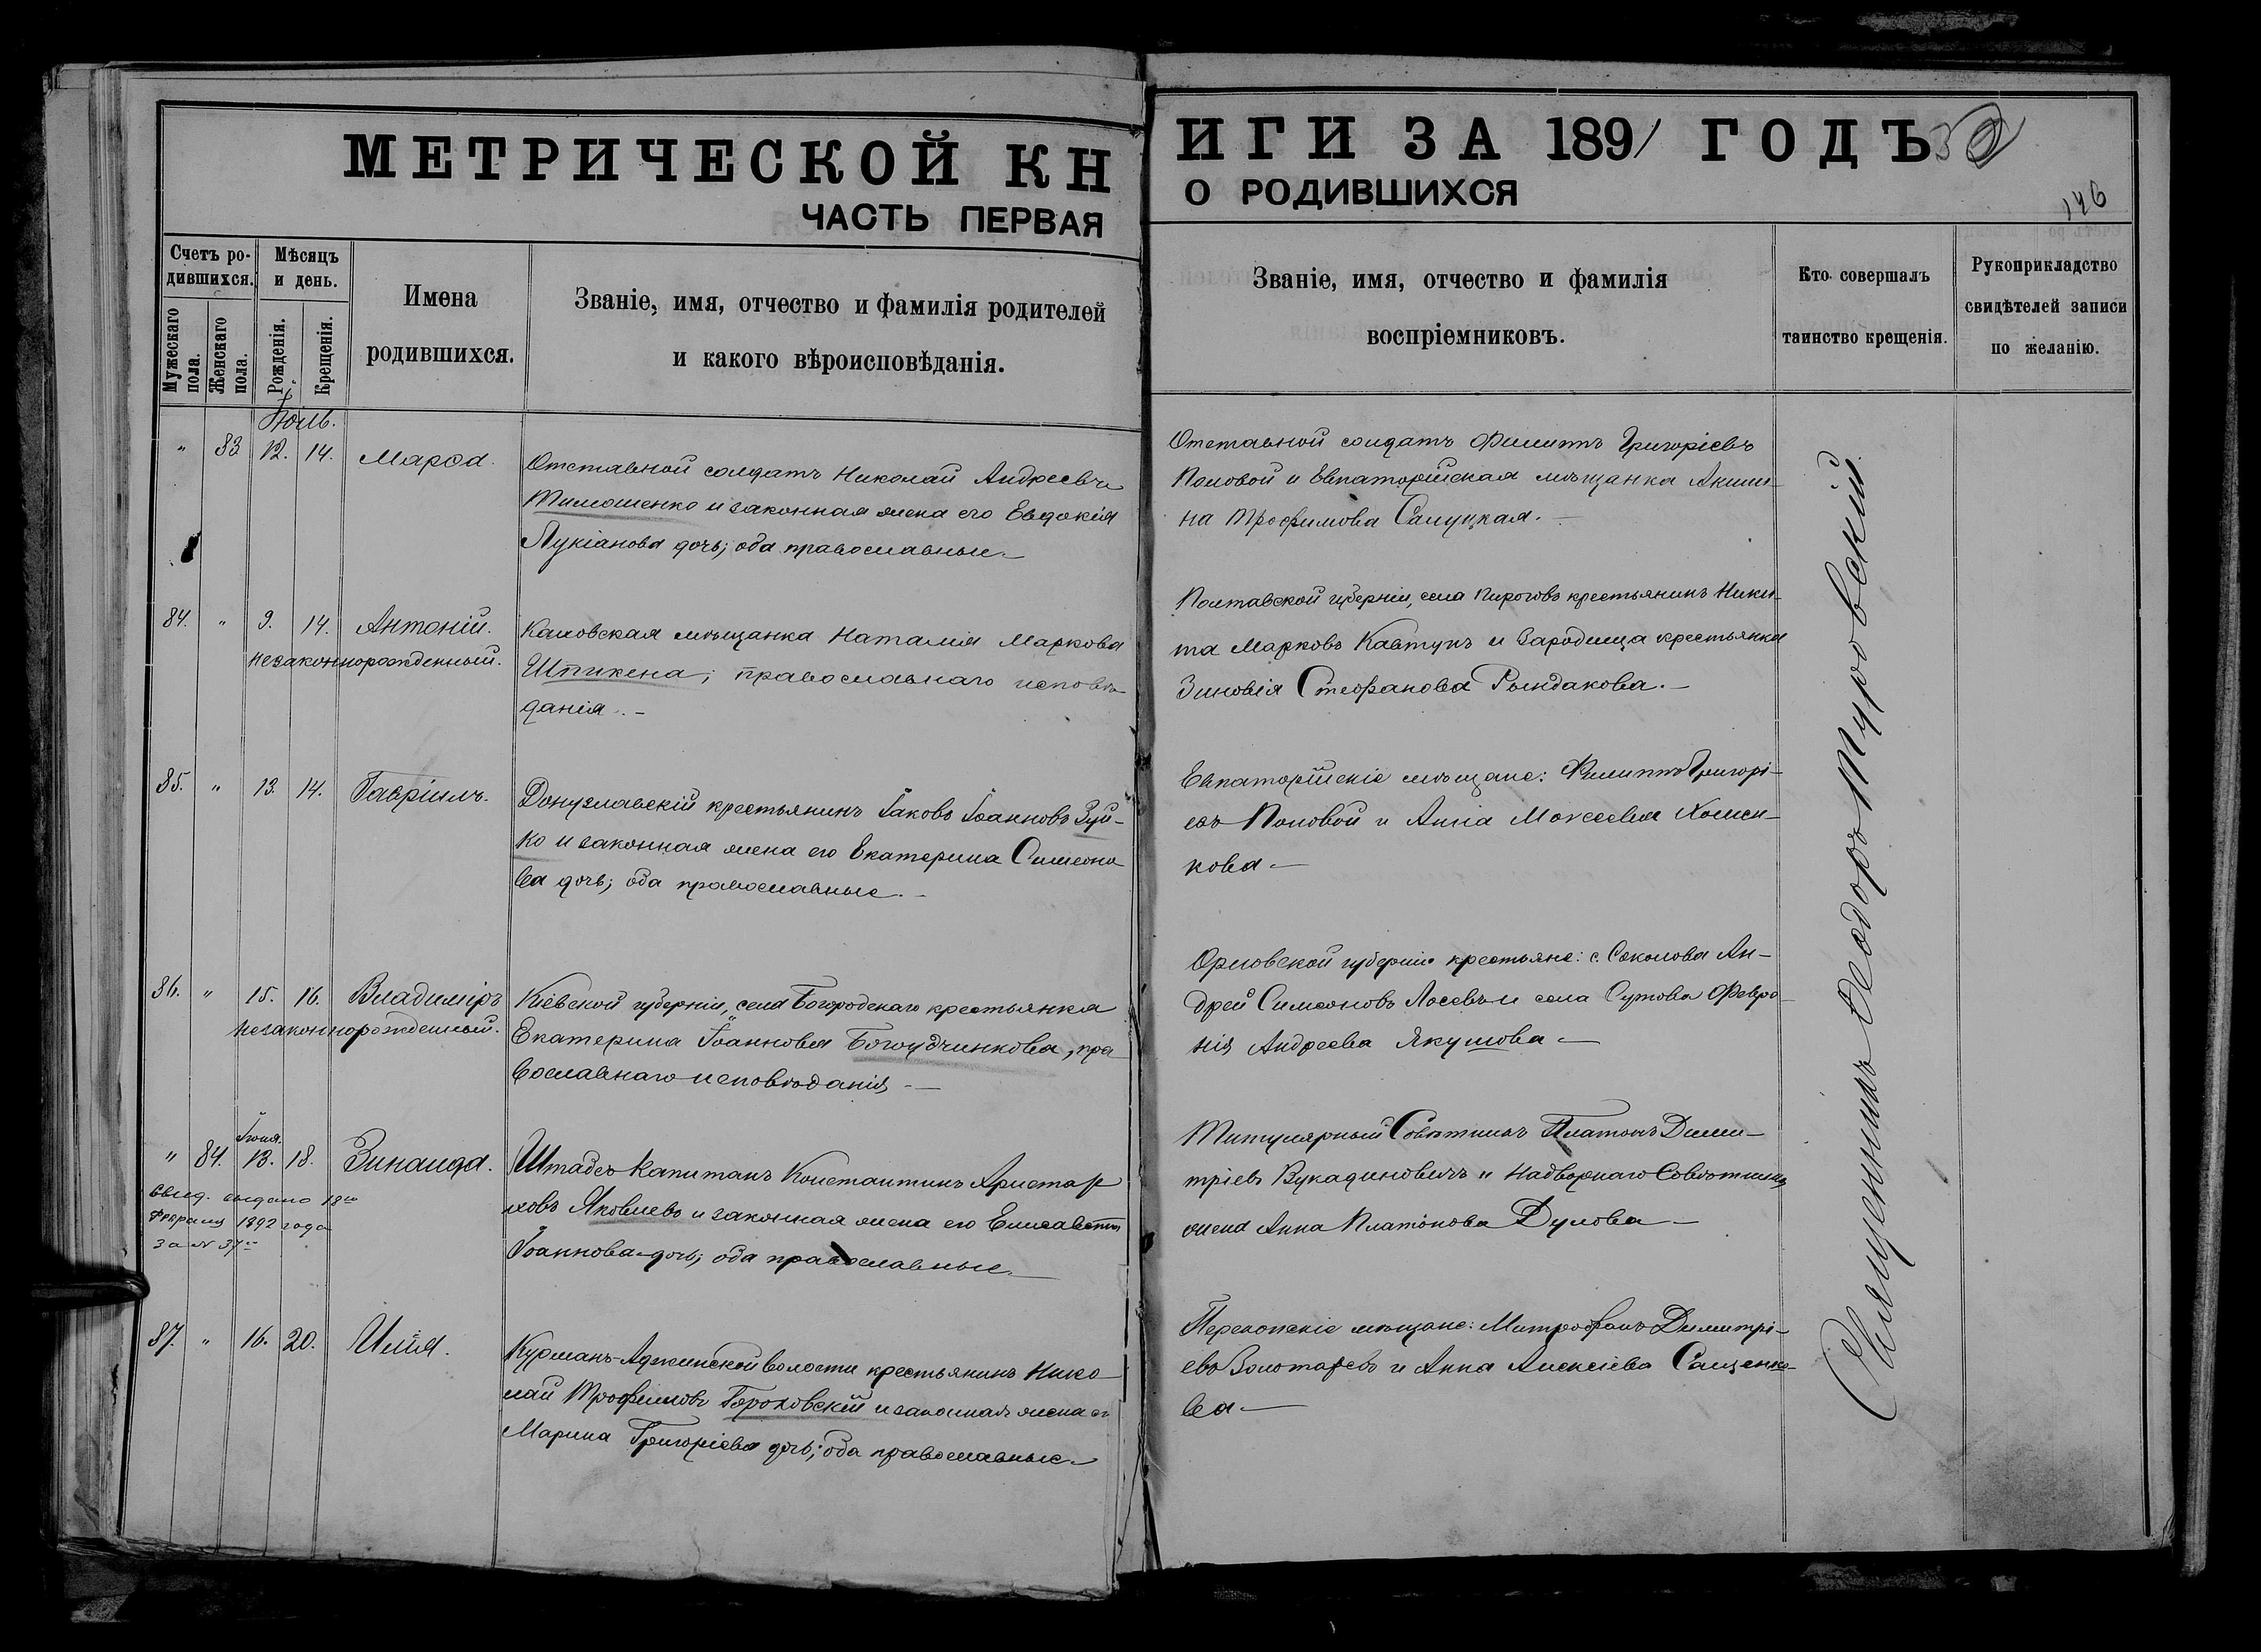 МЕТРИЧЕСКОЙ КНИГИ ЗА 1891 ГОДЪ
146
ЧАСТЬ ПЕРВАЯ О РОДИВШИХСЯ
Счетъ родившихся.
Мужескаго пола.
Женскаго пола.
Мѣсяцъ и день.
Рожденія.
Крещенія.
Имена родившихся.
Званіе, имя, отчество и фамилія родителей
и какого вѣроисповѣданія.
Званіе, имя, отчество и фамилія
воспріемниковъ.
Кто совершалъ
таинство крещенія.
Рукоприкладство
свидѣтелей записи
по желанію.
Іюль.
" 83 12. 14. Марѳа.
Отставной солдатъ Николай Андреевъ
Тимошенко и законная жена его Евдокія
Лукіанова дочь; оба православные
Отставной солдатъ Филиппъ Григоріевъ
Половой и Евпаторійская мѣщанка Акили-
на Трофимова Салуцкая.
84. " 9. 14. Антоній.
незаконнорожденный.
Каховская мѣщанка Наталія Маркова
Штикена; православнаго исповѣ-
данія. -
Полтавской губерніи, села Пироговъ крестьянинъ Ники-
та Марковъ Кавтунъ и Зародища крестьянка
Зиновія Стефанова Рындакова. -
85. " 13. 14. Гавріилъ.
Донузлавскій крестьянинъ Іаковъ Іоанновъ Зуй-
ко и законная жена его Екатерина Симеоно
ва дочь; оба православные. -
Евпаторійскіе мѣщане: Филиппъ Григорі-
евъ Половой и Анна Моисеева Хомен-
кова -
86. " 15. 16. Владиміръ
Незаконнорожденный.
Кіевской губерніи, села Богородскаго крестьянка
Екатерина Іоаннова Богудчинкова, пра
вославнаго исповѣданія -
Орловской губерніи крестьяне: с. Соколова Ан-
дрей Симеоновъ Лосевъ и села Сутова Февро-
нія Андреева Якушова -
Іюня.
" 84. 13. 18. Зинаида.
Свид. выдано 18го
Февраля 1892 года
За № 37м
Штабсъ Капитанъ Константинъ Аристар
ховъ Яковлевъ и законная жена его Елисавета
Іоаннова дочь; оба православные. -
Титулярный Совѣтникъ Платонъ Дими-
тріевъ Вукадиновичъ и Надворнаго Совѣтника
жена Анна Платонова Дулова -
87. " 16. 20. Илія.
Курманъ-Аджинской волости крестьянинъ Нико
лай Трофимовъ Гороховскій и законная жена его
Марина Григоріева дочь; оба православные
Перекопскіе мѣщане: Митрофанъ Димитрі-
евъ Золотаревъ и Анна Алексіева Сащенко-
ва -
Священникъ Ѳеодоръ Туровскій.